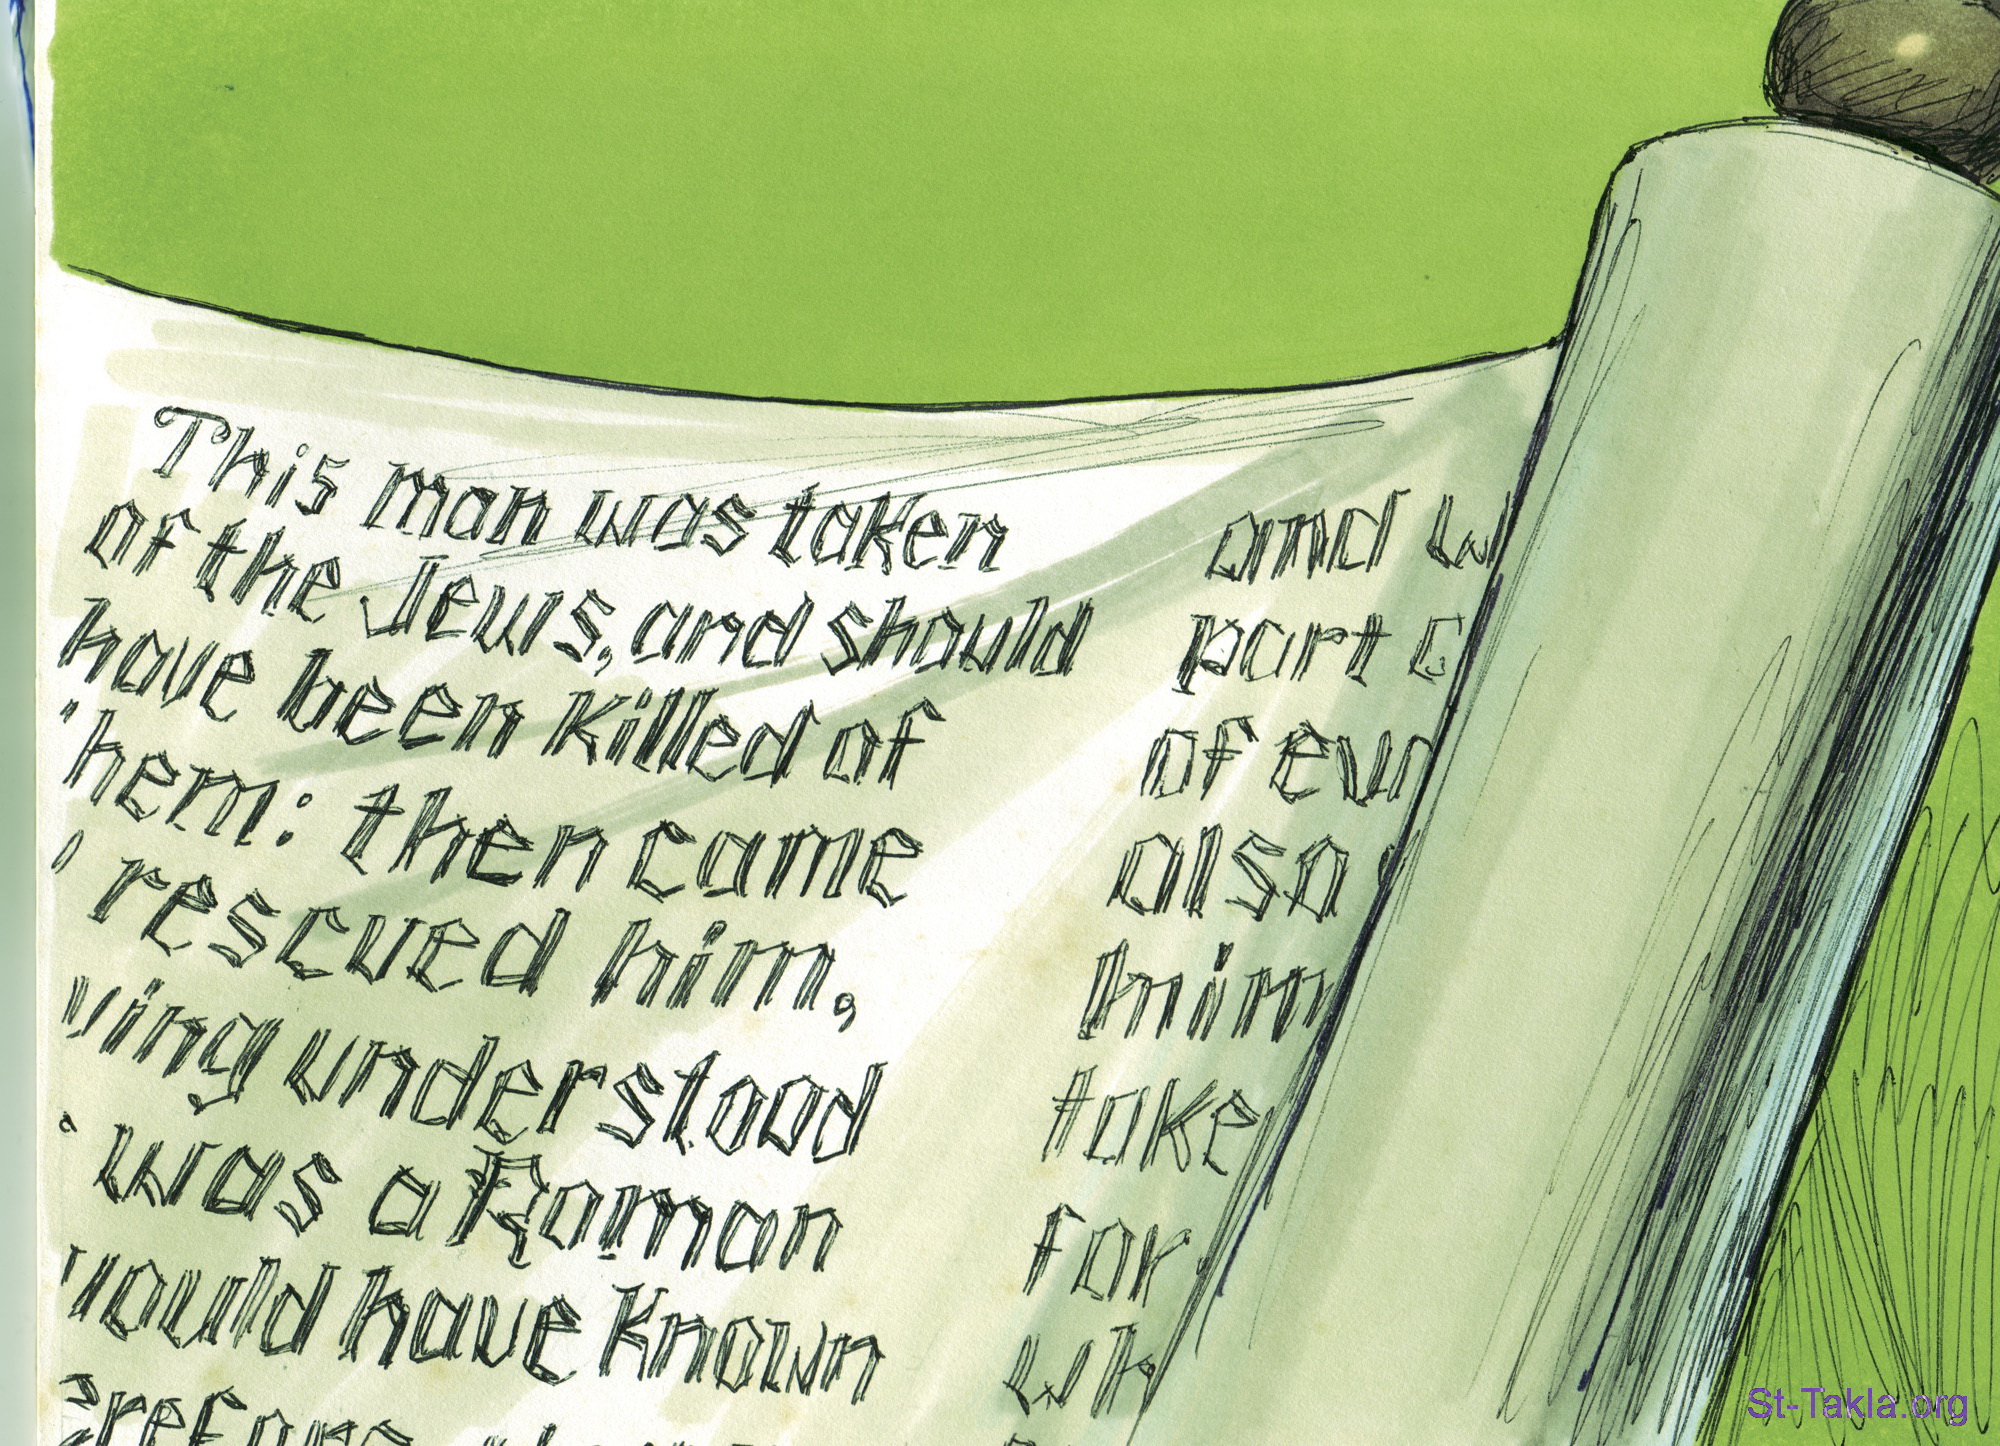 This man was taken
of the Jews, and should
have been Killed of
hem: then came
rescued him,
ving understood
was a Roman
would have Known
erefore
and w
part
of ev
also
him
take
for
wh
St-Takla.org